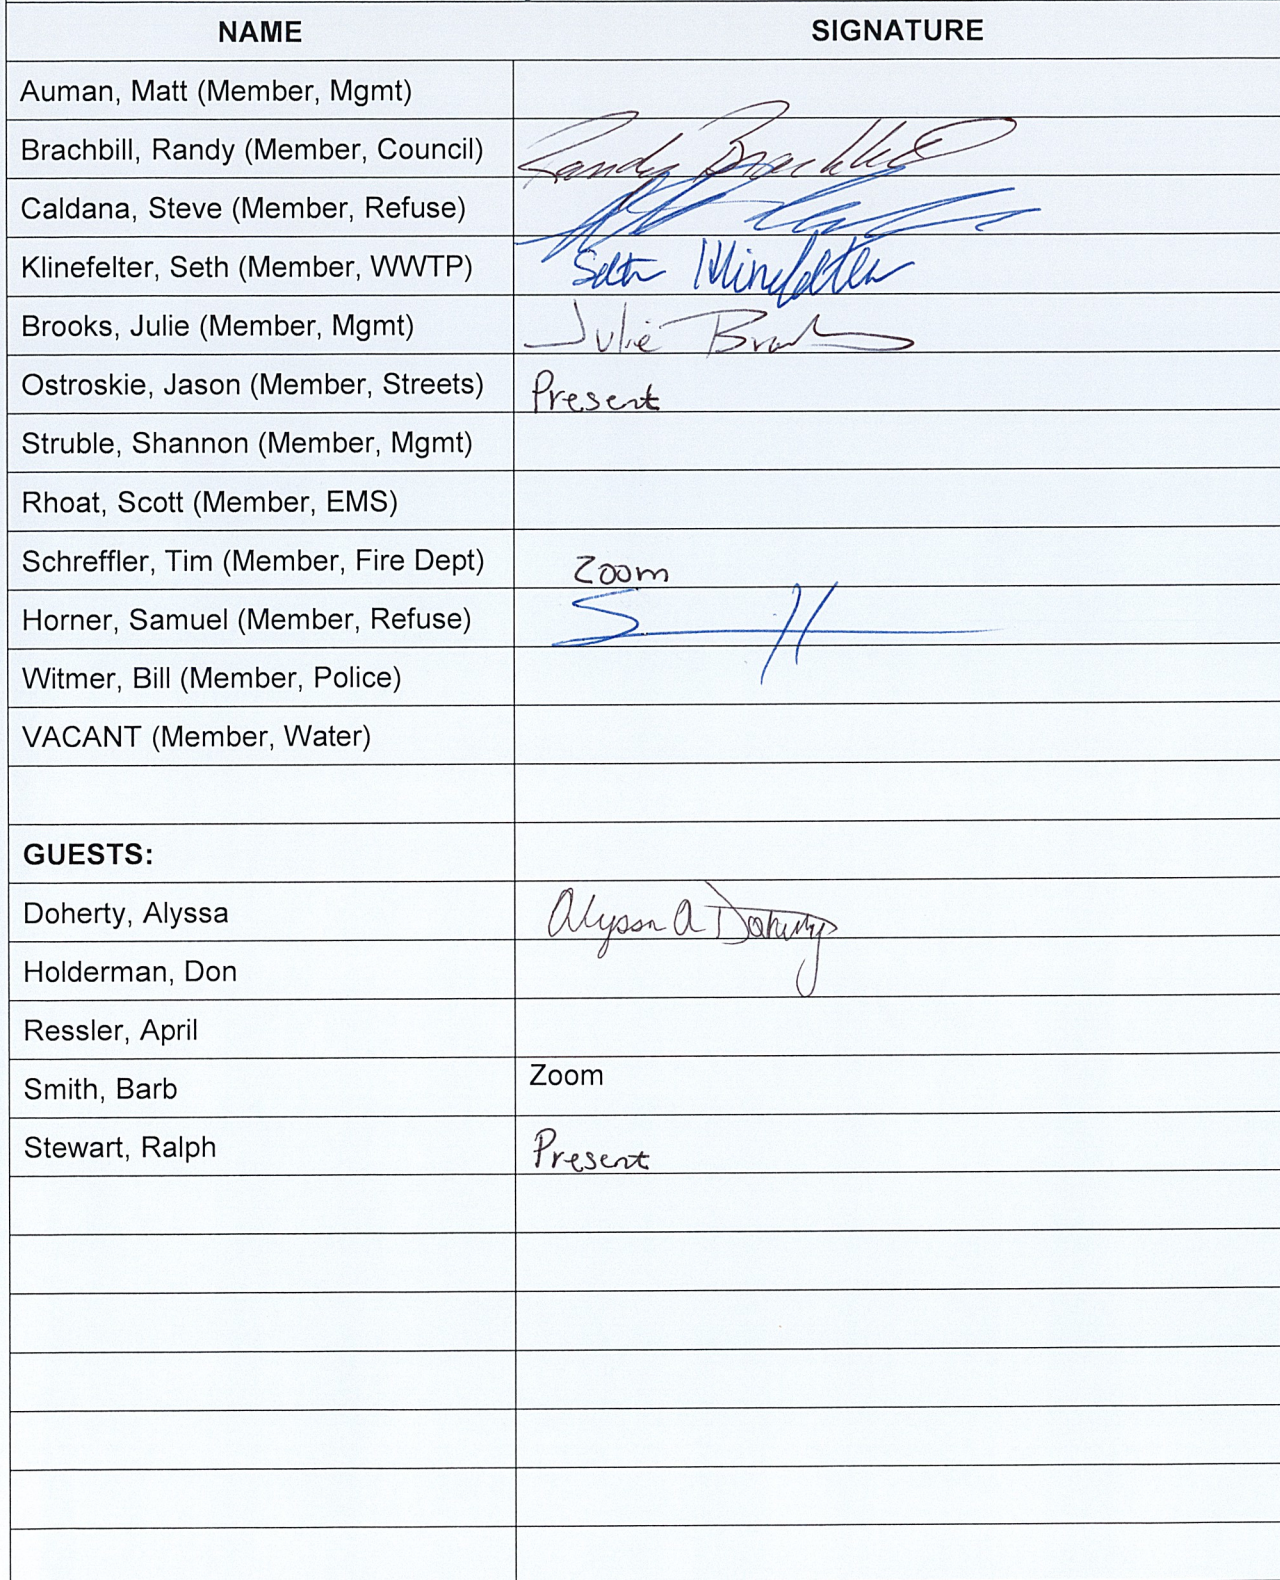 NAME SIGNATURE
Auman, Matt (Member, Mgmt)
Brachbill, Randy (Member, Council) Randy Brachbill
Caldana, Steve (Member, Refuse)
Klinefelter, Seth (Member, WWTP) Seth Klinefelter
Brooks, Julie (Member, Mgmt) Julie Brooks
Ostroskie, Jason (Member, Streets) Present
Struble, Shannon (Member, Mgmt)
Rhoat, Scott (Member, EMS)
Schreffler, Tim (Member, Fire Dept) Zoom
Horner, Samuel (Member, Refuse) S H
Witmer, Bill (Member, Police)
VACANT (Member, Water)
GUESTS:
Doherty, Alyssa Alyssa A Doherty
Holderman, Don
Ressler, April
Smith, Barb Zoom
Stewart, Ralph Present